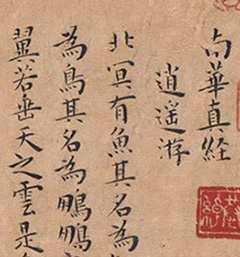 南華真経
逍遥游
北冥有魚其名為
為鳥其名為鵬鵬
翼若垂天之雲是